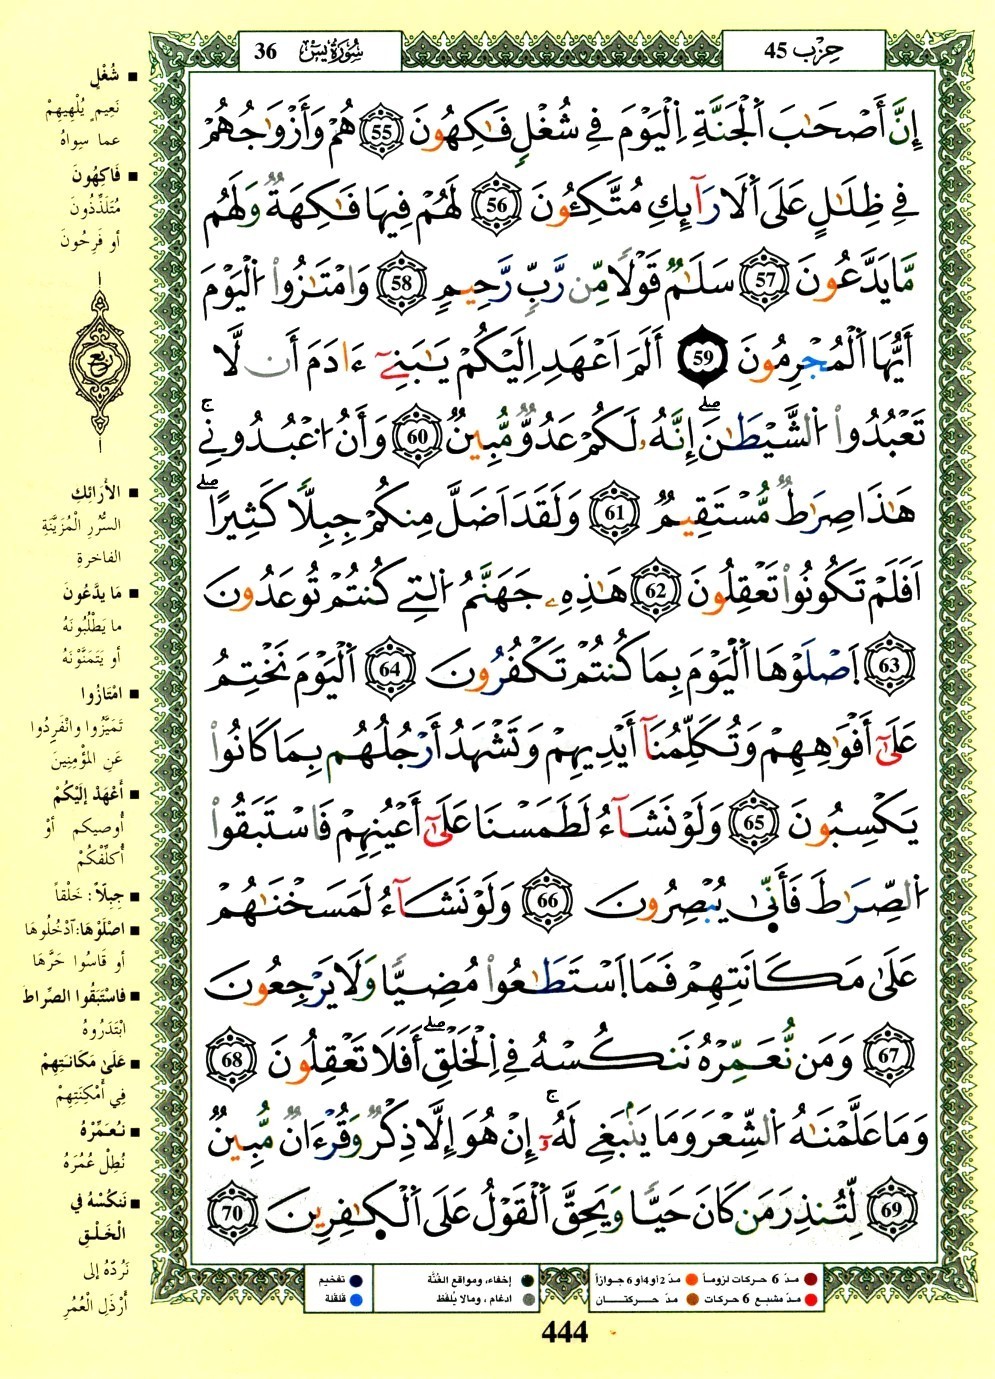 حِزْب 45
سُورَةُ يسٓ 36
إِنَّ أَصْحَٰبَ اَ۬لْجَنَّةِ اِ۬لْيَوْمَ فِے شُغْلٖ فَٰكِهُونَ 55 هُمْ وَأَزْوَٰجُهُمْ
فِے ظِلَٰلٍ عَلَى اَ۬لَارَآئِكِ مُتَّكِـُٔونَ 56 لَهُمْ فِيهَا فَٰكِهَةٞ وَلَهُم
مَّا يَدَّعُونَ 57 سَلَٰمٞ قَوْلاٗ مِّن رَّبّٖ رَّحِيمٖ 58 وَامْتَٰزُواْ اُ۬لْيَوْمَ
أَيُّهَا اَ۬لْمُجْرِمُونَ 59 أَلَمَ اَعْهَدِ اِلَيْكُمْ يَٰبَنِےٓ ءَادَمَ أَن لَّا
تَعْبُدُواْ اُ۬لشَّيْطَٰنَۖ إِنَّهُۥ لَكُمْ عَدُوّٞ مُّبِينٞ 60 وَأَنُ اُ۟عْبُدُونِےۚ
هَٰذَا صِرَٰطٞ مُّسْتَقِيمٞ 61 وَلَقَدَ اَضَلَّ مِنكُمْ جِبِلّاٗ كَثِيراًۖ
اَفَلَمْ تَكُونُواْ تَعْقِلُونَ 62 هَٰذِهِۦ جَهَنَّمُ اُ۬لتِے كُنتُمْ تُوعَدُونَ
63 اَ۪صْلَوْهَا اَ۬لْيَوْمَ بِمَا كُنتُمْ تَكْفُرُونَ 64 اَ۬لْيَوْمَ نَخْتِمُ
عَلَىٰٓ أَفْوَٰهِهِمْ وَتُكَلِّمُنَآ أَيْدِيهِمْ وَتَشْهَدُ أَرْجُلُهُم بِمَا كَانُواْ
يَكْسِبُونَ 65 وَلَوْ نَشَآءُ لَطَمَسْنَا عَلَىٰٓ أَعْيُنِهِمْ فَاسْتَبَقُواْ
اُ۬لصِّرَٰطَ فَأَنّ۪ىٰ يُبْصِرُونَ 66 وَلَوْ نَشَآءُ لَمَسَخْنَٰهُمْ
عَلَىٰ مَكَانَتِهِمْ فَمَا اَ۪سْتَطَٰعُواْ مُضِيّاٗ وَلَا يَرْجِعُونَ
67 وَمَن نُّعَمِّرْهُ نَنكُسْهُ فِے اِ۬لْخَلْقِۖ أَفَلَا تَعْقِلُونَ 68
وَمَا عَلَّمْنَٰهُ اُ۬لشِّعْرَ وَمَا يَنۢبَغِے لَهُۥٓۚ إِنْ هُوَ إِلَّا ذِكْرٞ وَقُرْءَانٞ مُّبِينٞ
69 لِّتُنذِرَ مَن كَانَ حَيّاٗ وَيَحِقَّ اَ۬لْقَوْلُ عَلَى اَ۬لْكٰ۪فِرِينَ 70
شُغْلٍ
نَعِيمٍ يُلْهِيهِمْ
عما سِواهُ
فَاكِهُونَ
مُتَلَذِّذُونَ
أو فَرِحُونَ
ربع
الأَرَائِكِ
السُّرُرِ الْمُزَيَّنَةِ
الفاخرةِ
مَا يدَّعُونَ
ما يَطْلُبُونَهُ
أو يَتَمَنَّوْنَهُ
امْتَازُوا
تَمَيَّزُوا وانْفَرِدُوا
عَنِ المُؤْمِنِينَ
أَعْهَدْ إلَيْكُمْ
أُوصيكم أوْ
أُكَلِّفْكُمْ
جِبِلّاً: خَلْقاً
اصْلَوْهَا: اُدْخُلُوهَا
أو قَاسُوا حَرَّهَا
فاسْتَبَقُوا الصِّراطَ
ابْتَدَرُوهُ
عَلَىٰ مَكَانَتِهِمْ
فِي أَمْكِنَتِهِمْ
نُعَمِّرْهُ
نُطِلْ عُمُرَهُ
نَنكُسْهُ فِي
الْخَلْقِ
نَرُدّهُ إلى
أَرْذَلِ الْعُمُرِ
مدّ 6 حركات لزوماً
مدّ 2 أو 4 أو 6 جوازاً
إخفاء، ومواقع الغُنَّة
تفخيم
مدّ مشبع 6 حركات
مدّ حركتان
ادغام، ومالا يُلفظ
قلقلة
444